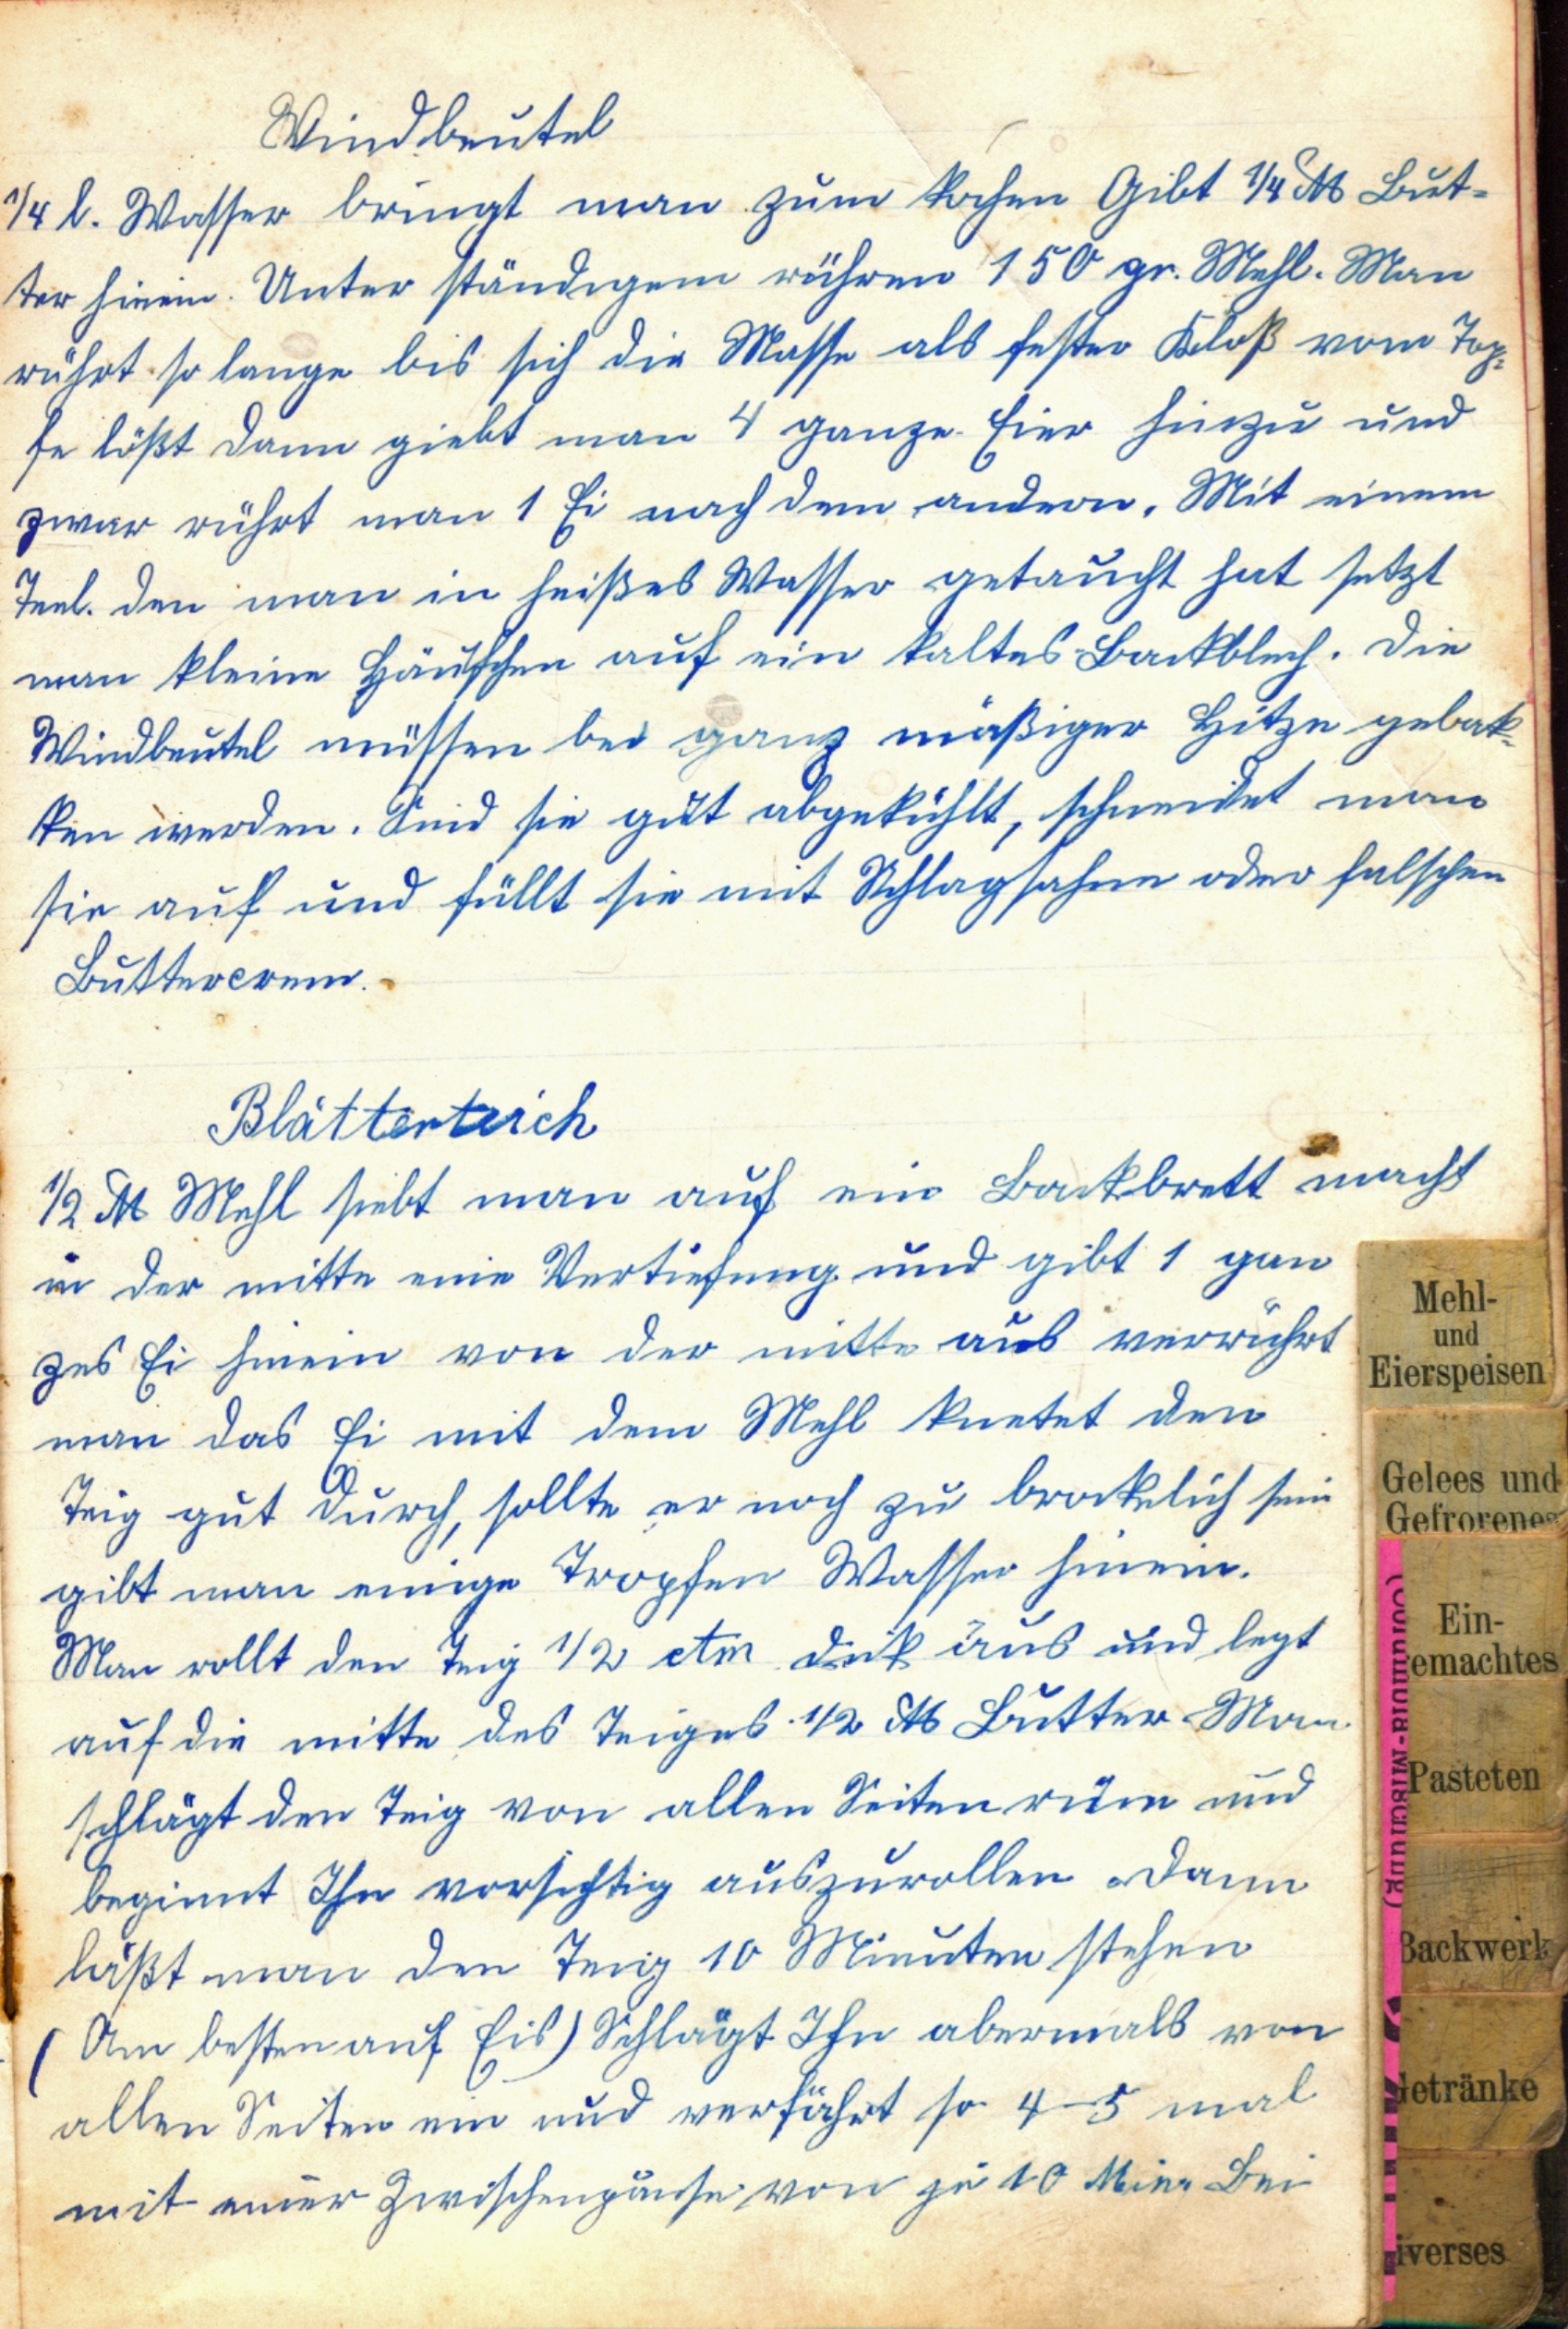 Windbeutel
1/4 l. Wasser bringt man zum kochen Gibt 1/4 ℔ But-
ter hinein. Unter ständigem rühren 150 gr. Mehl. Man
rührt so lange bis sich die Masse als fester Kloß vom Top-
fe lößt dann giebt man 4 ganze Eier hinzu und
zwar rührt man 1 Ei nach dem andern. Mit einem
Teel. den man in heißes Wasser getaucht hat setzt
man kleine Häufchen auf ein kaltes Backblech. Die
Windbeutel müssen bei ganz mäßiger Hitze gebak-
ken werden. Sind sie gut abgekühlt, schneidet man
sie auf und füllt sie mit Schlagsahne oder falschen
Buttercrem.
Blätterteich
1/2 ℔ Mehl siebt man auf ein Backbrett macht
in der mitte eine Vertiefung und gibt 1 gan
zes Ei hinein von der mitte aus verrührt
man das Ei mit dem Mehl knetet den
Teig gut durch, sollte er noch zu brockelich sein
gibt man einige Tropfen Wasser hinein.
Man rollt den Teig 1/2 ctm dick aus und legt
auf die mitte des Teiges 1/2 ℔ Butter Man
schlägt den Teig von allen Seiten rüm und
beginnt Ihn vorsichtig auszurollen. Dann
läßt man den Teig 10 Minuten stehen
(Am besten auf Eis) Schlägt Ihn abermals von
allen Seiten ein und verfährt so 4-5 mal
mit einer Zwischenpause von je 10 Min. Bei
Mehl-
und
Eierspeisen
Gelees und
Gefrorenes
Ein-
emachtes
Pasteten
Backwerk
Getränke
iverses